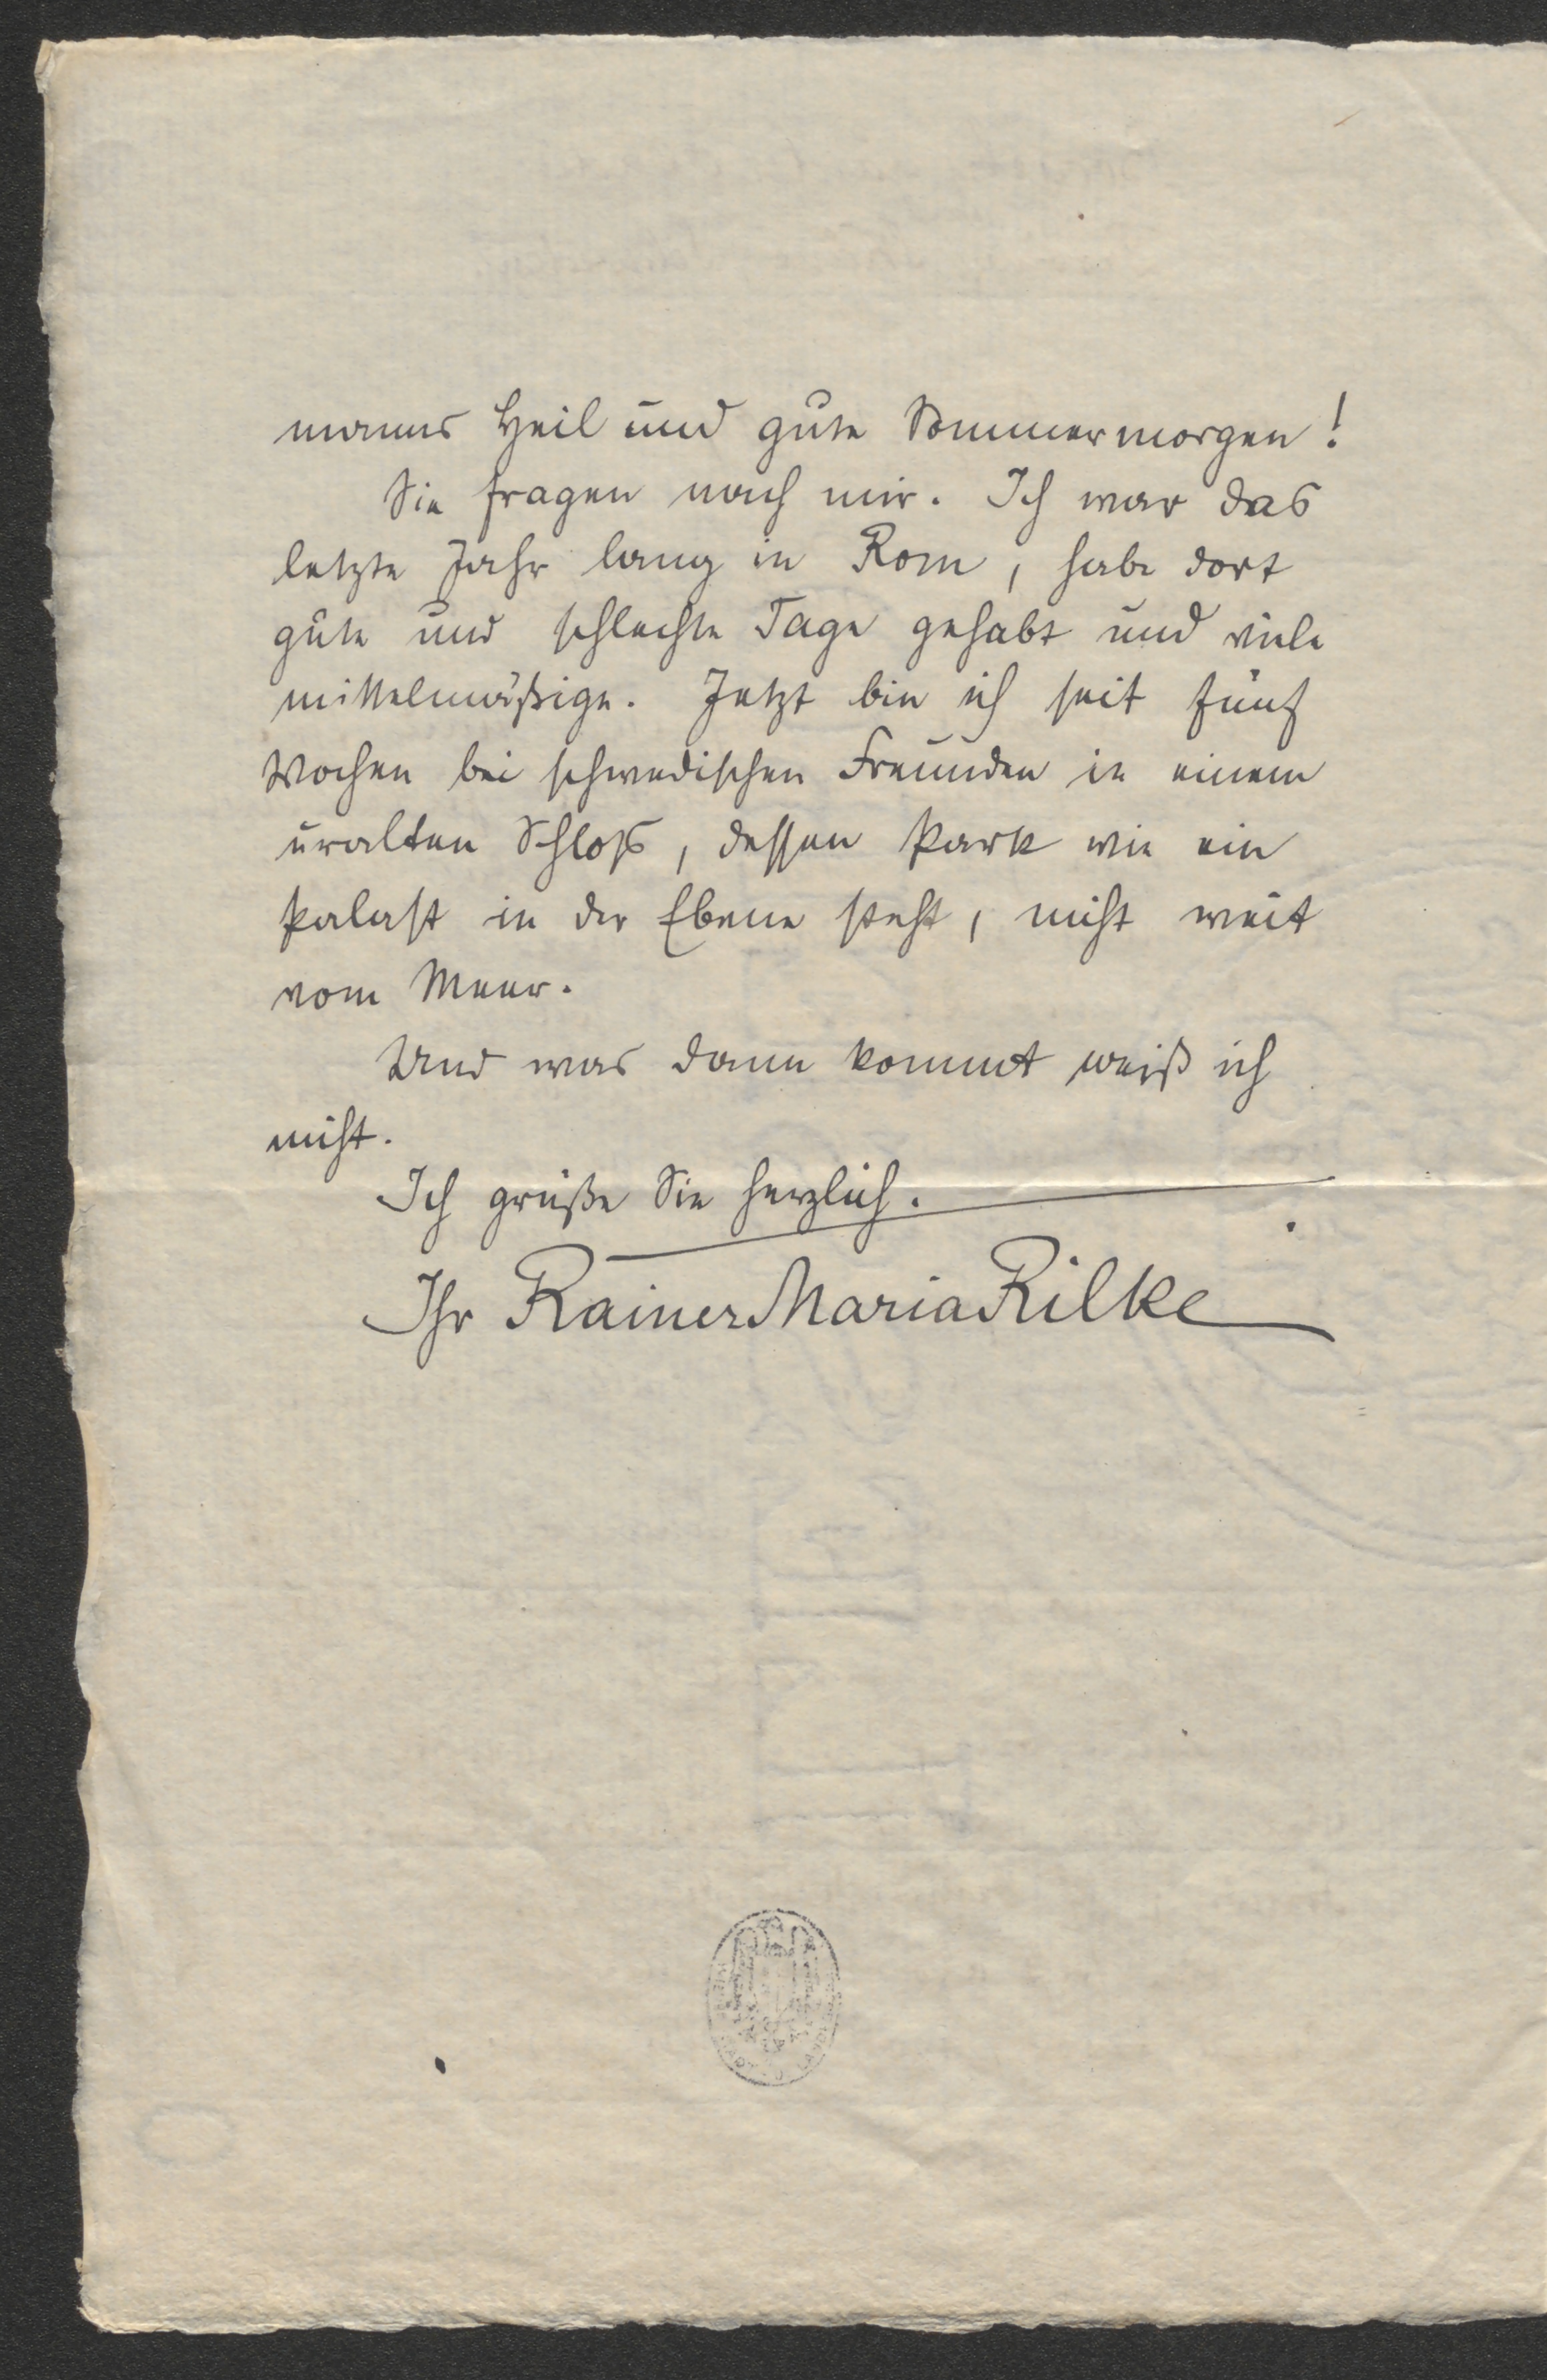 manns Heil und gute Sommermorgen!
Sie fragen nach mir. Ich war das
letzte Jahr lang in Rom, habe dort
gute und schlechte Tage gehabt und viele
mittelmäßige. Jetzt bin ich seit fünf
Wochen bei schwedischen Freunden in einem
uralten Schloß, dessen Park wie ein
Palast in der Ebene steht, nicht weit
vom Meer.
Und was dann kommt weiß ich
nicht.
Ich grüße Sie herzlich.
Ihr Rainer Maria Rilke